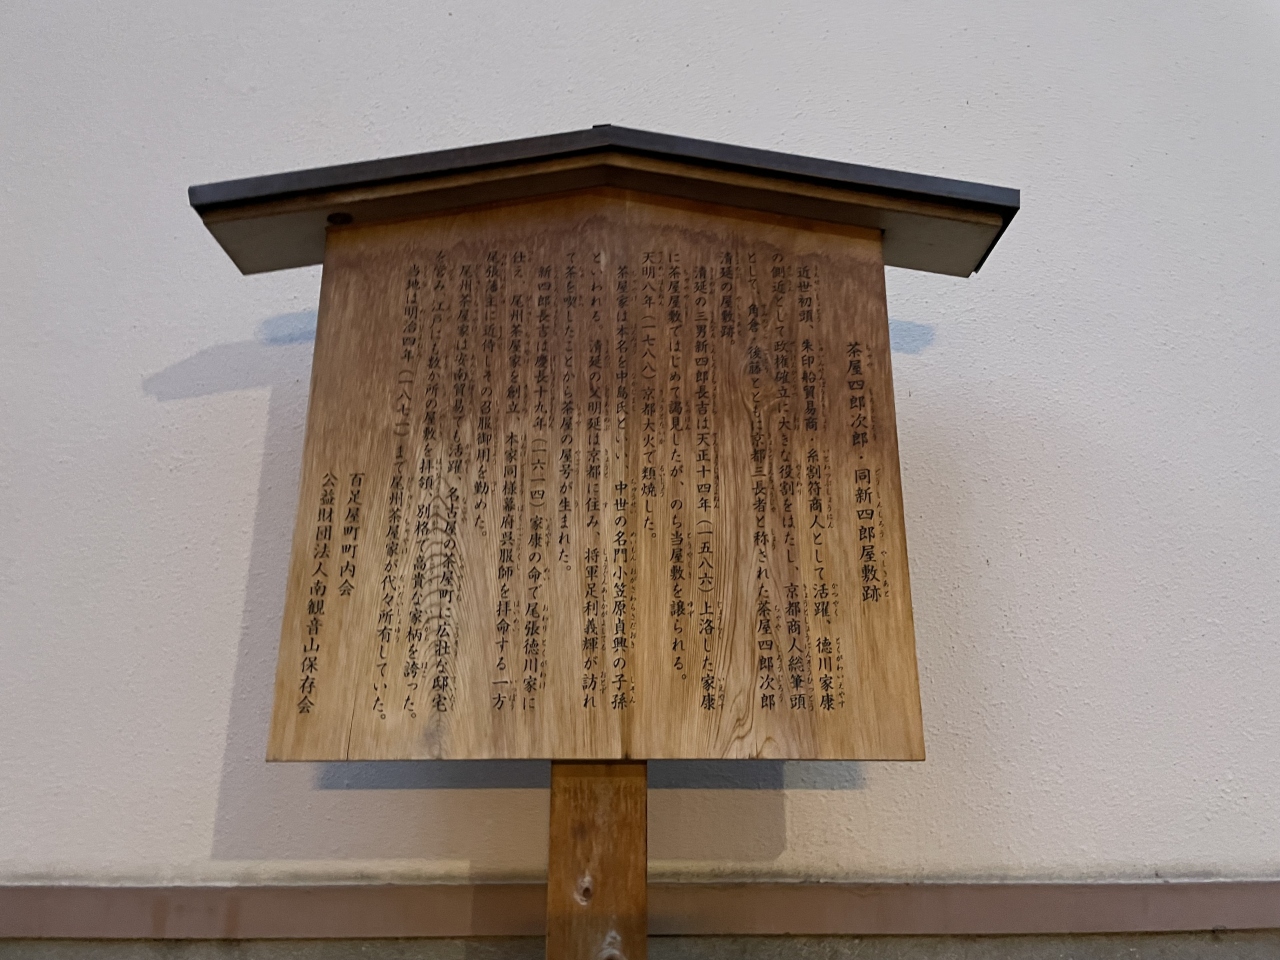 茶屋四郎次郎・同新四郎屋敷跡
近世初頭、朱印船貿易商・糸割符商人として活躍、徳川家康
の側近として政権確立に大きな役割をはたし、京都商人総筆頭
として、角倉・後藤とともに京都三長者と称された茶屋四郎次郎
清延の屋敷跡。
清延の三男新四郎長吉は天正十四年（一五八六）上洛した家康
に茶屋屋敷ではじめて謁見したが、のち当屋敷を譲られる。
天明八年（一七八八）京都大火で類焼した。
茶屋家は本名を中島氏といい、中世の名門小笠原貞興の子孫
といわれる。清延の父明延は京都に住み、将軍足利義輝が訪れ
て茶を喫したことから茶屋の屋号が生まれた。
新四郎長吉は慶長十九年（一六一四）家康の命で尾張徳川家に
仕え、尾州茶屋家を創立、本家同様幕府呉服師を拝命する一方
尾張藩主に近侍しその召服御用を勤めた。
尾州茶屋家は安南貿易でも活躍、名古屋の茶屋町に広壮な邸宅
を営み、江戸にも数か所の屋敷を拝領、別格で高貴な家柄を誇った。
当地は明治四年（一八七一）まで尾州茶屋家が代々所有していた。
百足屋町町内会
公益財団法人南観音山保存会